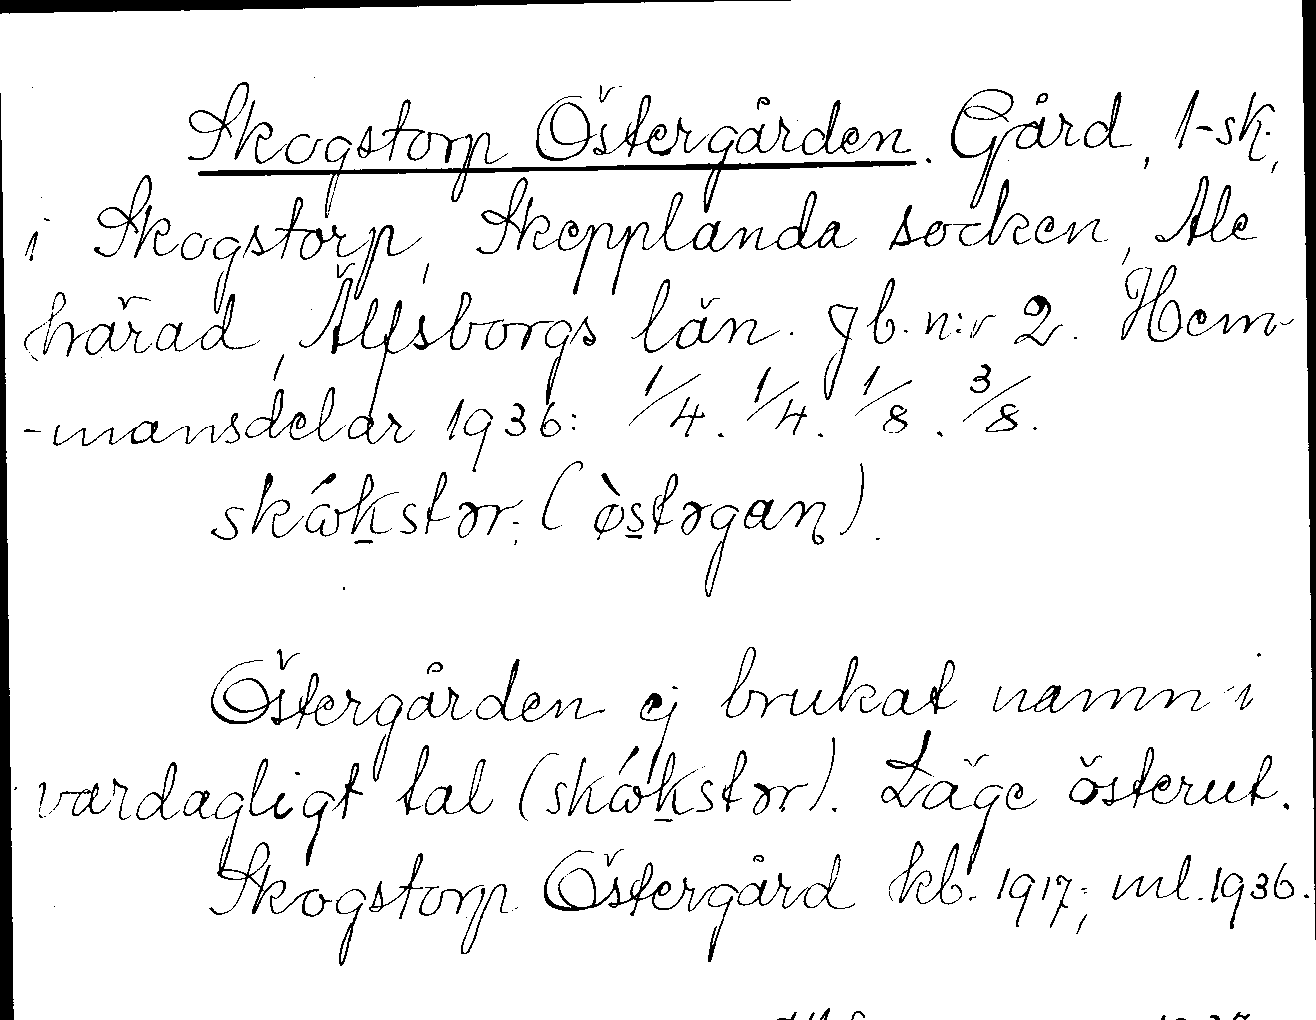 Skogstorp Östergården. Gård, 1-sk.,
i Skogstorp, Skepplanda socken, Ale
härad, Älfsborgs län. Jb. n:r 2. Hem-
-mansdelar 1936: 1/4. 1/4. 1/8. 3/8.
skώkstər. (ø̀stərgaɳ).
Östergården ej brukat namn i
vardagligt tal (skώkstər). Läge österut.
Skogstorp Östergård kb. 1917; ml. 1936.